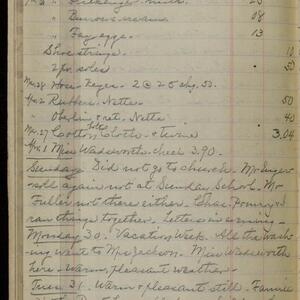 " Burrows cream 08
" Fay eggs 13
Shoe strings 10
2 pr. soles 50
Mr. 28 Hose - Keyes - 2 @ 25 chg. 50.
Ap. 2 Rubbers - Nette 50
" Oberlin g rat. Nette 40
Mr. 27 Cotton Cloth - & twine 3.04
Ap. 1 Miss Wadsworth check 3.90.
Sunday Did not go to church. Mr
sole again not at Sunday School. Mr
Fuller not there either. Chas. Pomroy &
ran things together. Letters in evening -
Monday 30. Vacation Week. All the wash-
ing went to Mrs Jackson. Miss Wadsworth
here - Warm, pleasant weather -
Tues 31. Warm & pleasant still.